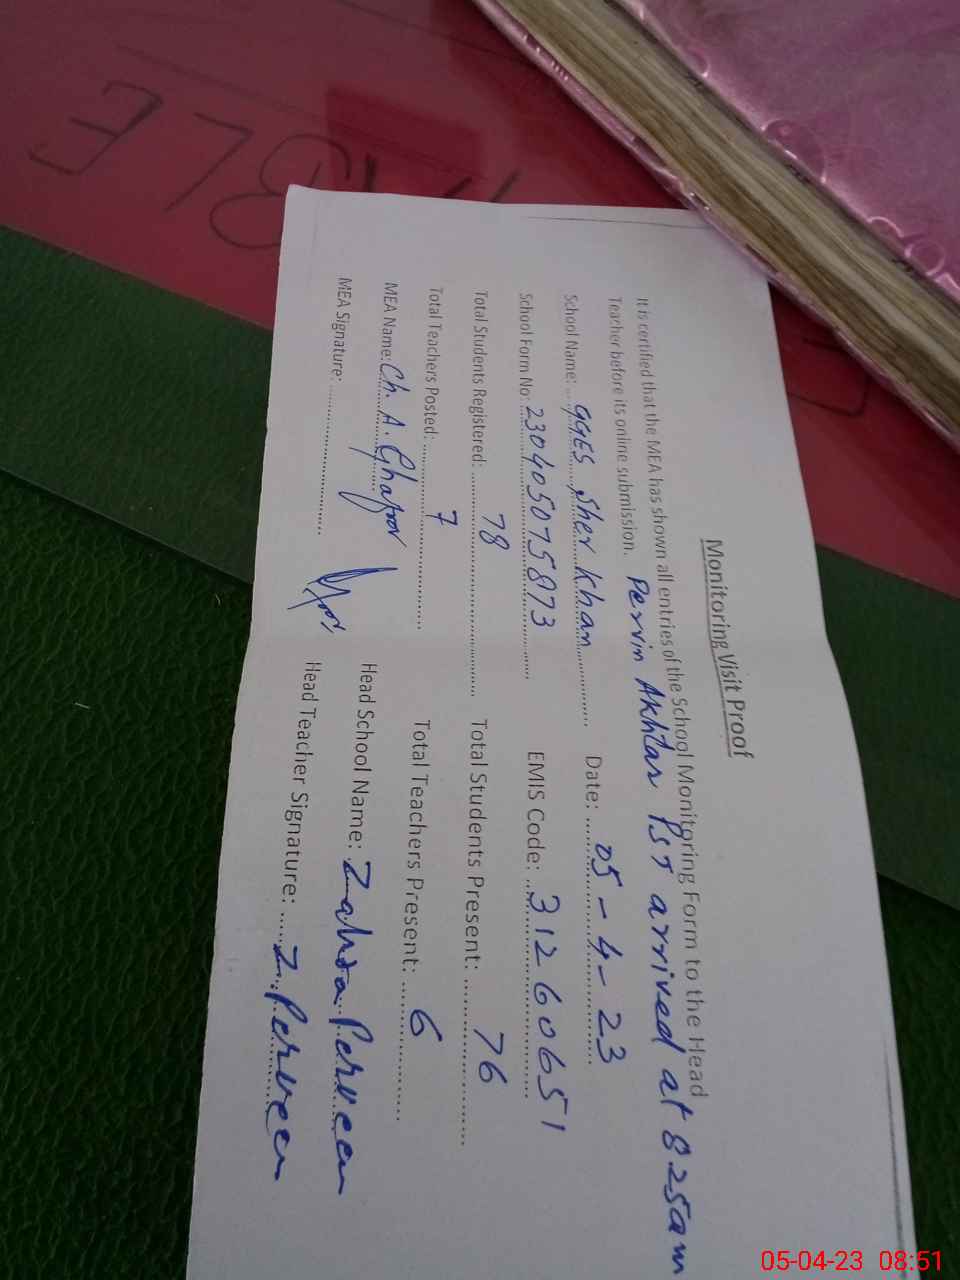 Monitoring Visit Proof
It is certified that the MEA has shown all entries of the School Monitoring Form to the Head
Teacher before its online submission. Pervin Akhtar PST arrived at 8 25am
School Name: GGES Sher Khan Date: 05-4-23
School Form No: 230405075873 EMIS Code: 31260651
Total Students Registered: 78 Total Students Present: 76
Total Teachers Posted: 7 Total Teachers Present: 6
MEA Name: Ch. A. Ghafoor Head School Name: Zahra Perveen
MEA Signature: Head Teacher Signature: Z. Perveen
BLE
05-04-23 08:51